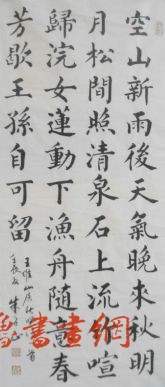 空山新雨後天氣晚來秋明
月松間照清泉石上流竹喧
歸浣女蓮動下漁舟隨意春
芳歇王孫自可留
王維山居秋暝
書畫網